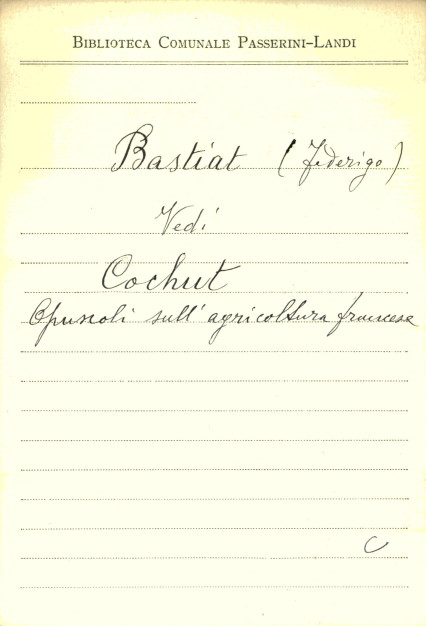 BIBLIOTECA COMUNALE PASSERINI-LANDI
Bastiat (Federigo)
Vedi
Cochut
Opuscoli sull'agricoltura francese
C